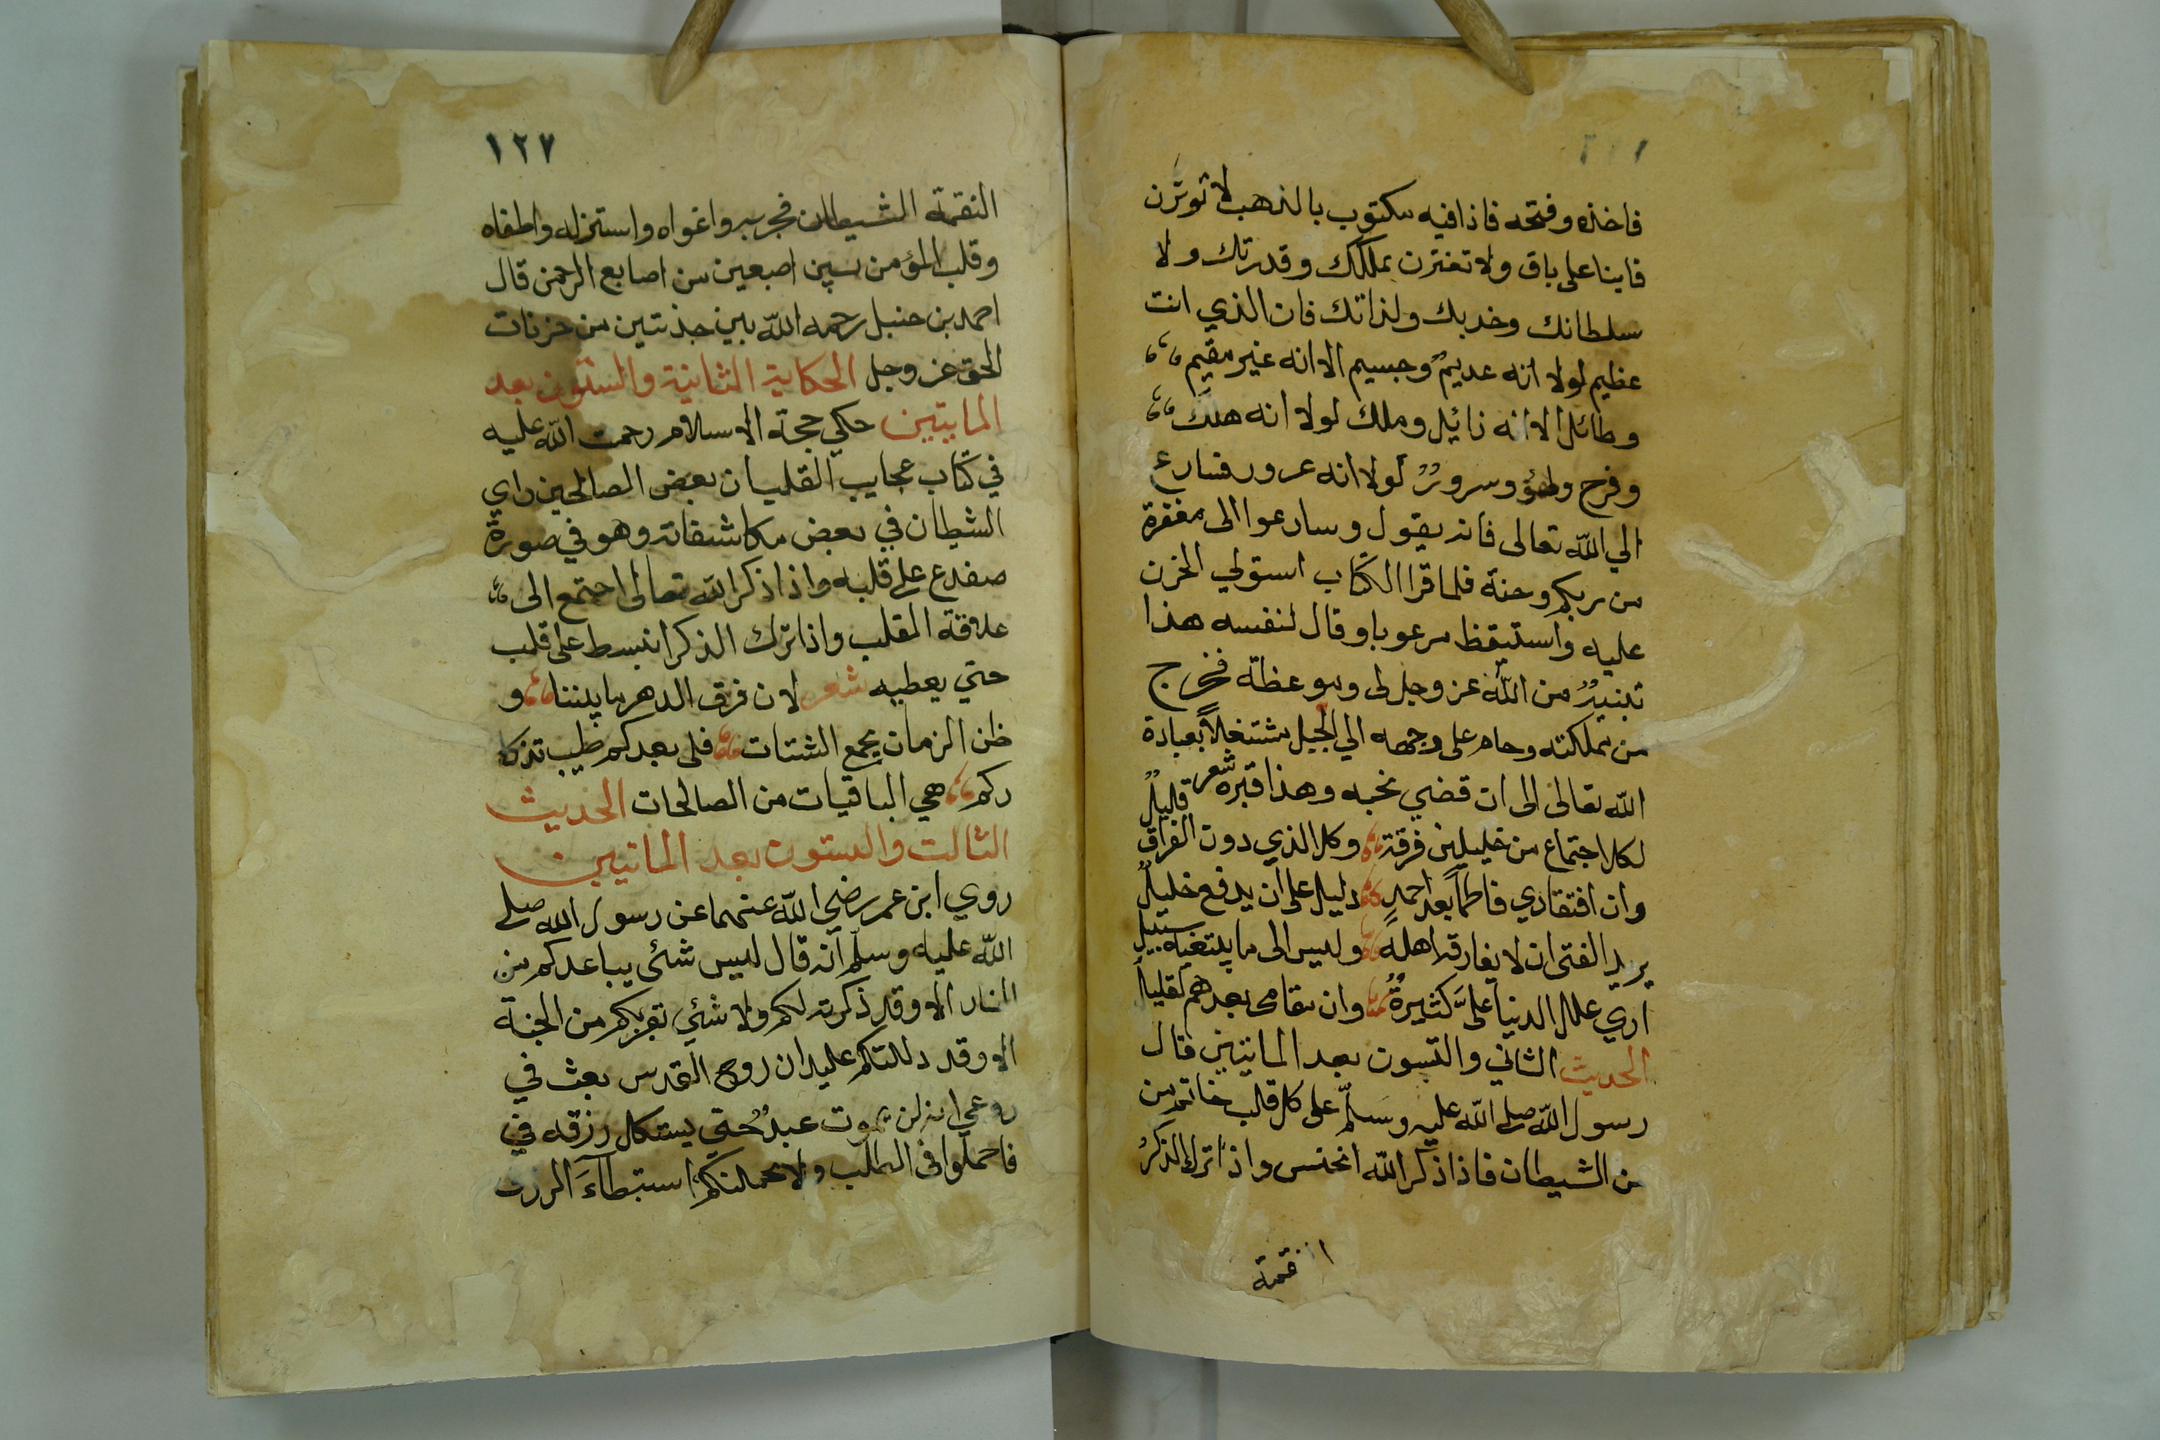 فاخذه وفتحه فاذا فيه مكتوب بالذهب لا توثرن
فانيا على باق ولا تغترن بملكك وقدرتك ولا
سلطانك وخدمك ولذاتك فان الذي انت
عظيم لولا انه عديم وجسيم الا انه غير مقيم
وطائل الا انه زائل وملك لولا انه هلك
وفرح ولهو وسرور لولا انه غرور فسارع
الي الله تعالى فانه يقول وسارعوا الى مغفرة
من ربكم وجنة فلما قرا الكتاب استولي الحزن
عليه واستيقظ مرعوبا وقال لنفسه هذا
تنبيه من الله عز وجل لى وموعظة فخرج
من مملكته وهام على وجهه الي الجبل مشتغلاً بعبادة
الله تعالى الى ان قضي نحبه وهذا قبره شعر
لكل اجتماع من خليلين فرقة وكل الذي دون الفراق قليل
وان افتقادي فاطماً بعد احمد دليل على ان يدفع خليل
يريد الفتى ان لا يفارق اهله وليس الى ما يبتغيه سبيل
اري علل الدنيا على كثيرة وان مقامى بعدهم لقليل
الحديث الثاني والستون بعد الماتيين قال
رسول الله صلى الله عليه وسلم على كل قلب خاتم من
من الشيطان فاذا ذكر الله انخنس واذا ترك الذكر
النقمة
١٢٧
النقمة الشيطان فجر به واغواه واستزله واطفاه
وقلب المؤمن بين اصبعين من اصابع الرحمن قال
احمد بن حنبل رحمه الله بين جذبتين من
الحق عز وجل الحكاية الثانية والستون بعد
الماتيين حكي حجة الاسلام رحمت الله عليه
في كتاب عجايب القلب ان بعض الصالحين راي
الشيطان في بعض مكاشفاته وهو في صورة
صفدع على قلبه واذا ذكر الله تعالى اجتمع الى
علاقة القلب واذا ترك الذكر انبسط على قلب
حتي يعطيه شعر لان فرق الدهر ما بيننا و
ظن الزمان بجمع الشتات فلى بعدكم طيب تذكا
ركم هي الباقيات من الصالحات الحديث
الثالث والستون بعد الماتيين
روي ابن عمر رضي الله عنهما عن رسول الله صلى
الله عليه وسلم انه قال ليس شئى يباعدكم من
النار الا وقد ذكرته لكم ولا شئي يقربكم من الجنة
الا وقد دللتكم عليه ان روح القدس بعث في
روعي انه لن يموت عبد حتي يستكمل رزقه في
فاحملوا فى الطلب ولا يحملنكم استبطآء الرزق